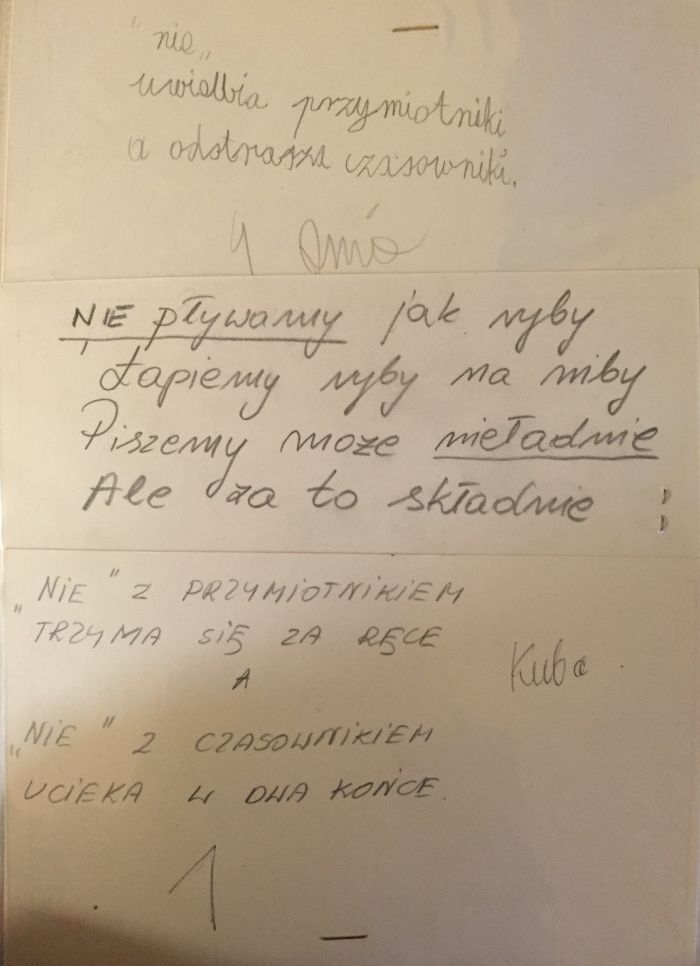 "nie„
uwielbia przymiotniki
a odstrasza czasowniki.
NIE pływamy jak ryby
Łapiemy ryby na niby
Piszemy może nieładnie
Ale za to składnie
„NiE" Z PRZYMIOTNIKIEM
TRZYMA SIĘ ZA RĘCE
Kuba
A
„NIE" Z CZASOWNIKIEM
UCIEKA W DWA KOŃCE.
1